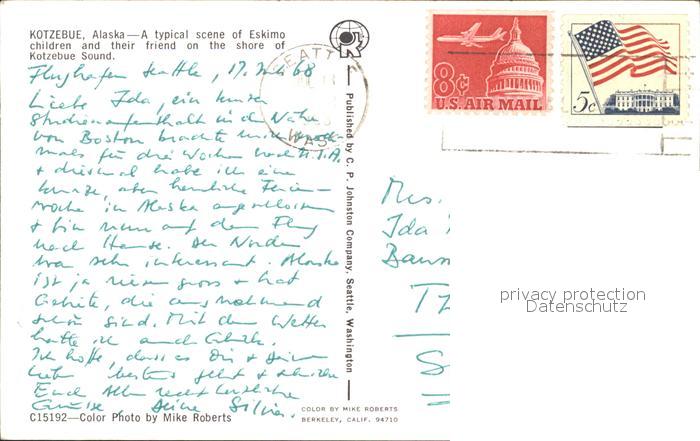 KOTZEBUE, Alaska—A typical scene of Eskimo
children and their friend on the shore of
Kotzebue Sound.
Flughafen Seattle, 17. Juli 68
Liebe Ida, ein kurzer
Studienaufenthalt in der Nähe
von Boston brachte mich
mals für drei Wochen nach U.S.A.
+ diesmal habe ich eine
kurze, aber herrliche Ferien-
woche in Alaska angeschlossen
+ bin nun auf dem Flug
nach Hause. Der Norden
war sehr interessant. Alaska
ist ja riesen gross + hat
Gebiete, die ausnehmend
schön sind. Mit dem Wetter
hatte ich auch Glück.
Ich hoffe, dass es Dir + Deinen
Lieben bestens geht + schicke
Euch allen recht herzliche
Grüsse, Deine Silvia.
C15192—Color Photo by Mike Roberts
Published by C. P. Johnston Company, Seattle, Washington
COLOR BY MIKE ROBERTS
BERKELEY, CALIF. 94710
SEATTLE
WASH
8¢
U.S. AIR MAIL
5¢
Mrs.
Ida
privacy protection
Datenschutz